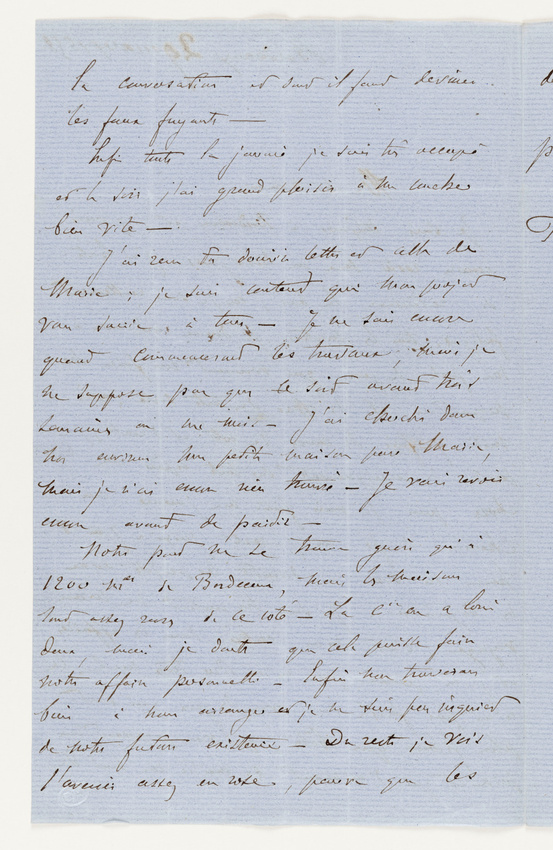 la conversation et dont il faut deviner..
les faux fuyants —
Enfin toute la journée je suis très occupé
et le soir j'ai grand plaisir à me coucher
bien vite —
J'ai reçu ta dernière lettre et celle de
Marie ; je suis content que mon projet
vous sourie, à tous — Je ne sais encore
quand commenceront les travaux, mais je
ne suppose pas que ce soit avant trois
semaines ou un mois — J'ai cherché dans
nos environs une petite maison pour Marie,
mais je n'ai encore rien trouvé — Je vais revoir
encore avant de partir —
Notre pont ne se trouve guère qu'à
1200 mes de Bordeaux, mais les maisons
sont assez rares de ce côté — La Cie en a loué
deux, mais je doute que cela puisse faire
notre affaire personnelle — Enfin nous trouverons
bien à nous arranger et je ne suis pas inquiet
de notre future existence — Du reste je vois
l'avenir assez en rose, pourvu que les